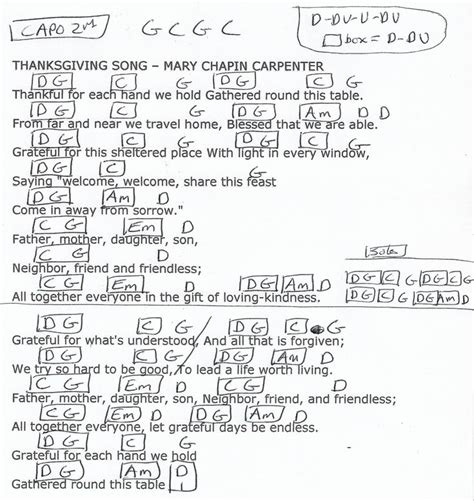 CAPO 2nd G C G C D-DU-U-DU
box = D-DU
THANKSGIVING SONG – MARY CHAPIN CARPENTER
D G C G D G C G
Thankful for each hand we hold Gathered round this table.
D G C G D G Am D D
From far and near we travel home, Blessed that we are able.
D G C G D G C G
Grateful for this sheltered place With light in every window,
D G C G
Saying "welcome, welcome, share this feast
D G Am D
Come in away from sorrow."
C G Em D
Father, mother, daughter, son,
C G D
Neighbor, friend and friendless;
Solo
D G C G D G C G
C G Em D D G Am D
D G C G D G Am D
All together everyone in the gift of loving-kindness.
D G C G D G C G
Grateful for what's understood, And all that is forgiven;
D G C G D G Am D
We try so hard to be good, To lead a life worth living.
C G Em D C G D
Father, mother, daughter, son, Neighbor, friend, and friendless;
C G Em D D G Am D
All together everyone, let grateful days be endless.
D G C G
Grateful for each hand we hold
D G Am D
Gathered round this table